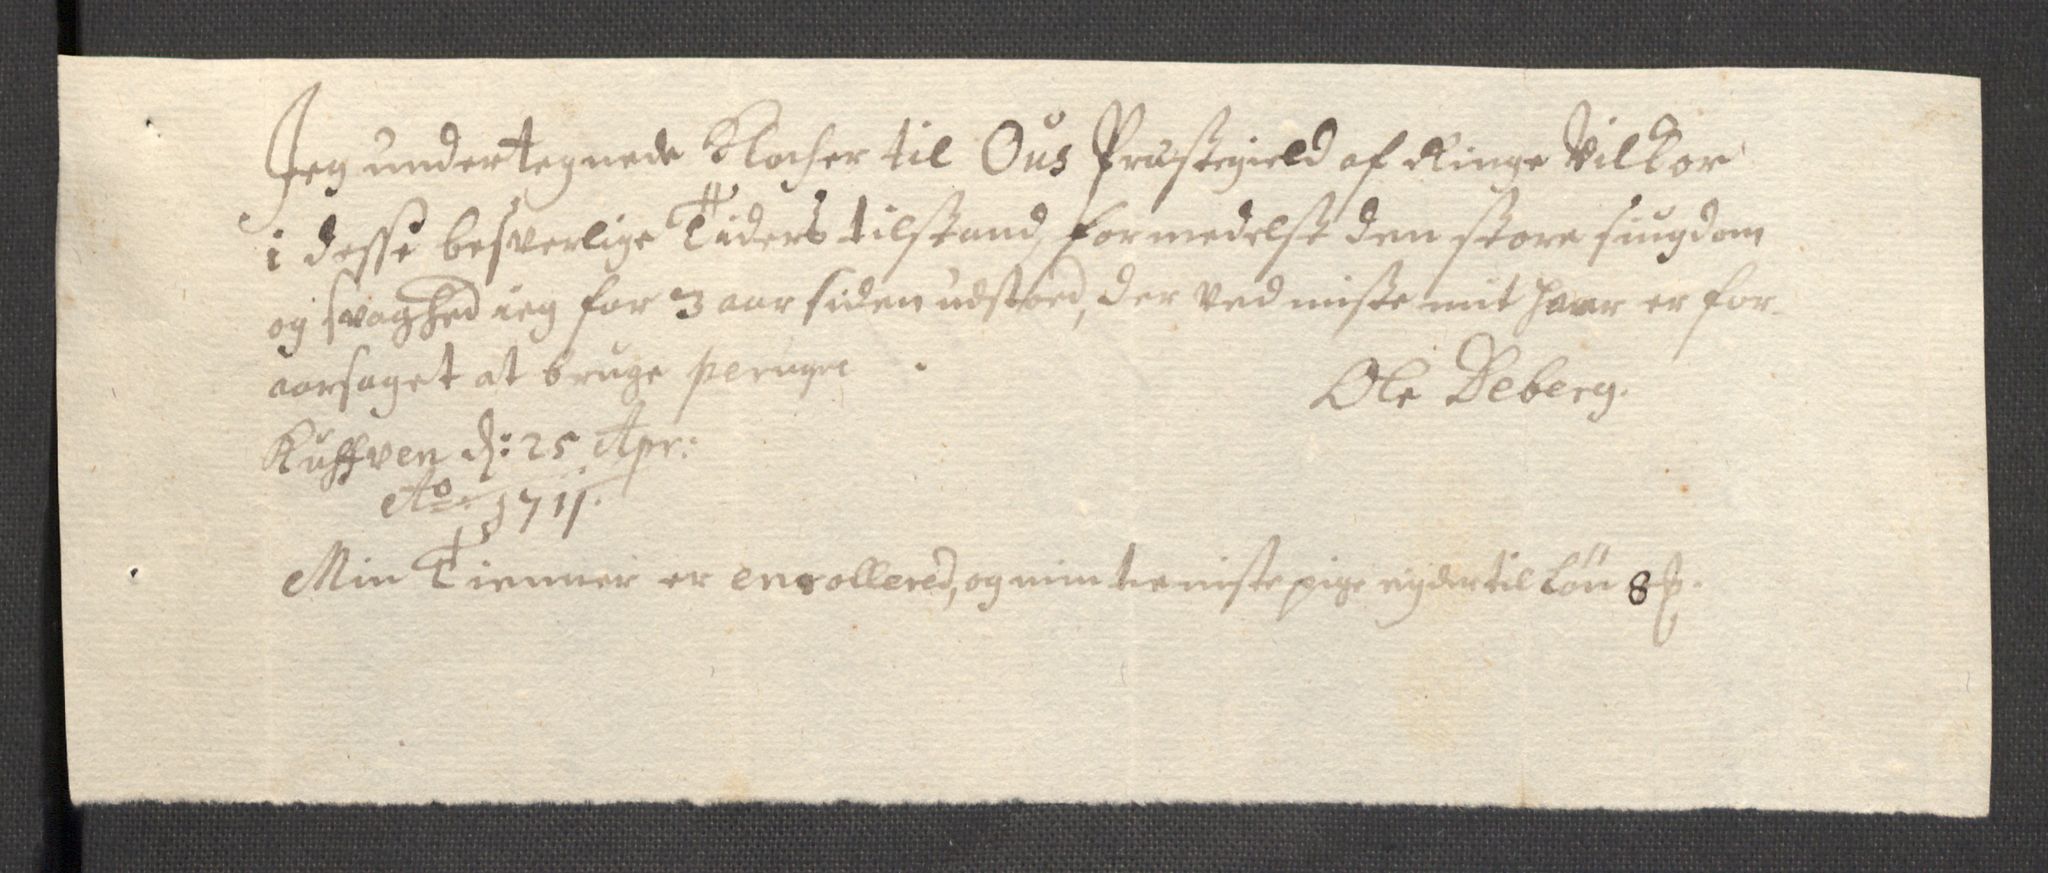 Jeg undertegnede Klocher til Ous Præstegield af Ringe Vilkor
i desse besverlige Tiders tilstand, formedelst den store siugdom
og svaghed ieg for 3 aar siden udstoed, der ved miste mit haar er for-
aarsaget at bruge peruqve.
Ole Deberg.
Kuhfven d: 25 Apr:
Ao. 1711.
Min Tienner er enrollered, og min tieniste pige nyder til Løn 8